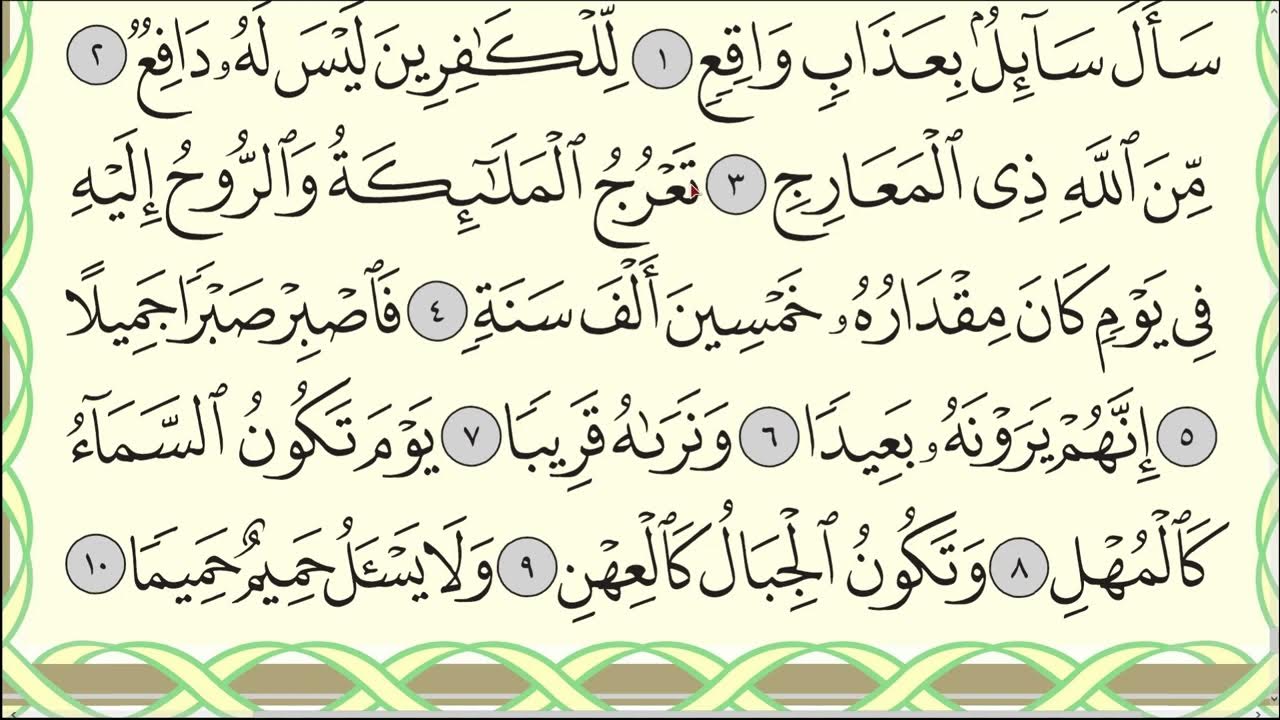 سَأَلَ سَآئِلُۢ بِعَذَابٖ وَاقِعٖ ١ لِّلۡكَٰفِرِينَ لَيۡسَ لَهُۥ دَافِعٞ ٢
مِّنَ ٱللَّهِ ذِي ٱلۡمَعَارِجِ ٣ تَعۡرُجُ ٱلۡمَلَٰٓئِكَةُ وَٱلرُّوحُ إِلَيۡهِ
فِي يَوۡمٖ كَانَ مِقۡدَارُهُۥ خَمۡسِينَ أَلۡفَ سَنَةٖ ٤ فَٱصۡبِرۡ صَبۡرٗا جَمِيلًا
٥ إِنَّهُمۡ يَرَوۡنَهُۥ بَعِيدٗا ٦ وَنَرَىٰهُ قَرِيبٗا ٧ يَوۡمَ تَكُونُ ٱلسَّمَآءُ
كَٱلۡمُهۡلِ ٨ وَتَكُونُ ٱلۡجِبَالُ كَٱلۡعِهۡنِ ٩ وَلَا يَسۡـَٔلُ حَمِيمٌ حَمِيمٗا ١٠